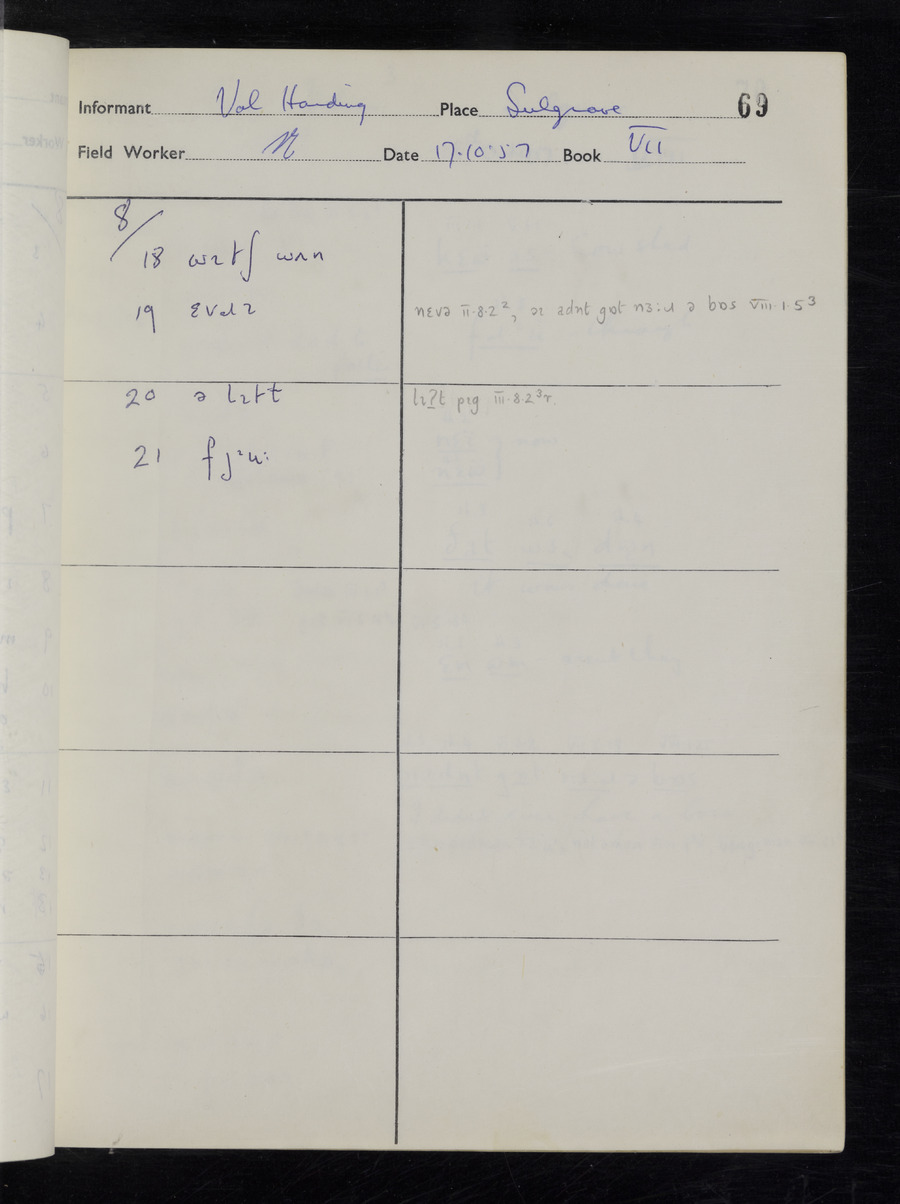 Informant Val Harding Place Sulgrave 69
Field Worker Date 17.10.57 Book VII
8/
18 wɪtʃ wʌn
19
nɛvə II.8.2², aɪ adnt gɒt nɜ:ɹ ə bɒs VIII.1.5³
20 ə
lɪʔt pɪg III.8.2³r.
21